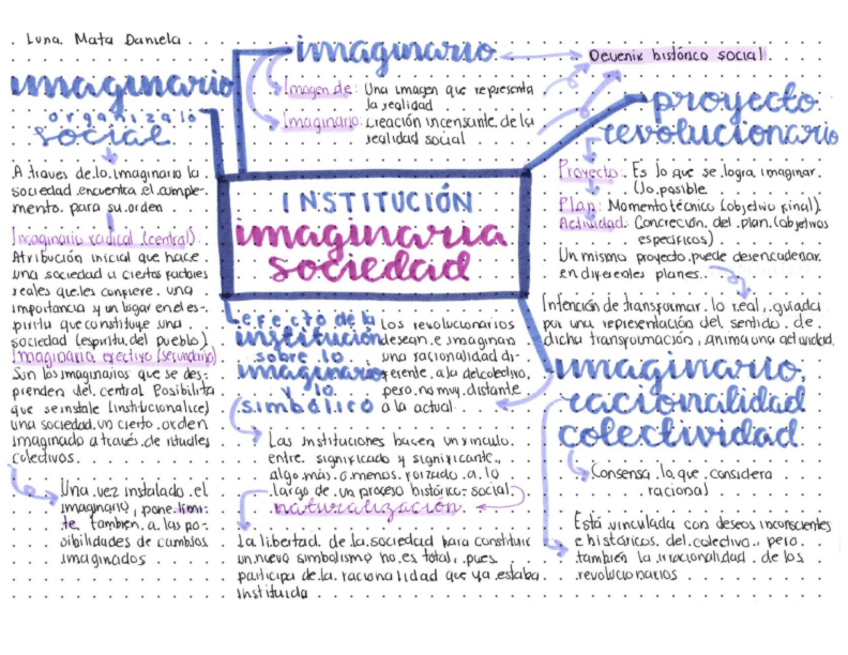 Luna Mata Daniela
imaginario
organiza lo
social
A traves de lo imaginario la
sociedad encuentra el comple-
mento para su orden
Imaginario radical (central):
Atribución inicial que hace
una sociedad a ciertos factores
reales que les confiere una
importancia y un lugar en el es-
piritu que constituye una
sociedad (espiritu del pueblo)
Imaginario efectivo (secundario)
Son los imaginarios que se des-
prenden del central. Posibilita
que se instale (institucionalice)
una sociedad, un cierto orden
imaginado a través de rituales
colectivos.
Una vez instalado el
imaginario, pone limi-
te tambien a las po-
sibilidades de cambios
imaginados
imaginario
Devenir histórico social
Imagen de: Una imagen que representa
la realidad
Imaginario: creación incensante de la
realidad social
INSTITUCIÓN
imaginaria
sociedad
proyecto
revolucionario
Proyecto: Es lo que se logra imaginar.
(lo posible
Plan: Momento técnico (objetivo final).
Actividad: Concreción del plan (objetivos
especificos)
Un mismo proyecto puede desencadenar
en diferentes planes.
Intención de transformar lo real, guiada
por una representación del sentido de
dicha transformación, anima una actividad.
efecto de la
institución
sobre lo
imaginario
y lo
simbólico
Los revolucionarios
desean e imaginan
una racionalidad di-
ferente a la del colectivo,
pero no muy distante
a la actual.
Las instituciones hacen un vinculo
entre significado y significante,
algo más o menos forzado a lo
largo de un proceso histórico-social.
naturalización
La libertad de la sociedad para constituir
un nuevo simbolismo no es total, pues
participa de la racionalidad que ya estaba
instituida
imaginario,
racionalidad
colectividad
Consensa lo que considera
racional
Está vinculada con deseos inconscientes
e históricos del colectivo, pero
también la irracionalidad de los
revolucionarios